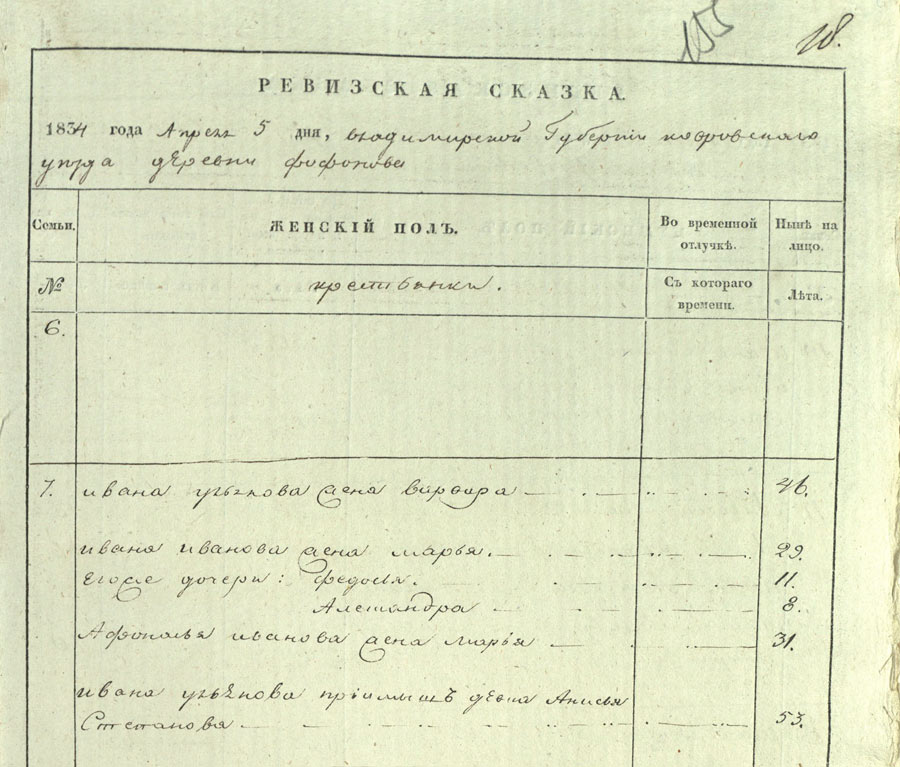 18.
РЕВИЗСКАЯ СКАЗКА.
1834 года Апреля 5 дня, владимирской Губерніи ковровского
уѣзда деревни фофонова
Семьи. ЖЕНСКІЙ ПОЛЪ. Во временной отлучкѣ. Нынѣ на лицо.
№ крестьянки. Съ котораго времени. Лѣта.
6.
7. ивана жена варвара 46.
ивана иванова жена марья. 29.
Егоже дочери: федосья. 11.
Александра 8.
Афонасья иванова жена марья 31.
ивана пріимышъ девка Анисья
Степанова 53.